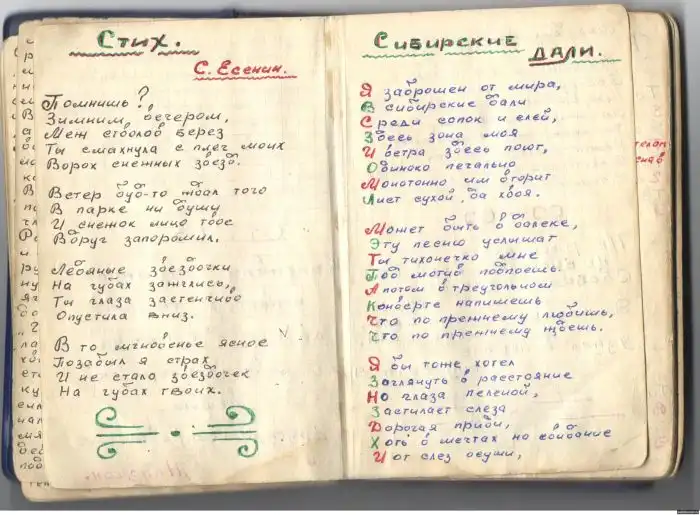 Стих.
С. Есенин.
Помнишь?
Зимним вечером,
Меж стволов берез
Ты смахнула с плеч моих
Ворох снежных звезд.
Ветер буд-то ждал того
В парке ни души
И снежок лицо твое
Вдруг запорошил.
Ледяные звездочки
На губах зажглись,
Ты глаза застенчиво
Опустила вниз.
В то мгновенье ясное
Позабыл я страх
И не стало звездочек
На губах твоих.
Сибирские
дали.
Я заброшен от мира,
В сибирские дали
Среди сопок и елей,
Здесь зона моя
И ветра здесь поют,
Одиноко печально
Монотонно им вторит
Лист сухой, да хвоя.
Может быть в далеке,
Эту песню услышат
Ты тихонечко мне
Под мотив подпоешь.
А потом в треугольном
Конверте напишешь
Что по прежнему любишь,
Что по прежнему ждешь.
Я бы тоже хотел
Заглянуть в расстояние
Но глаза пеленой,
Застилает слеза
Дорогая приди,
Хоть в мечтах на свидание
И от слез осуши,